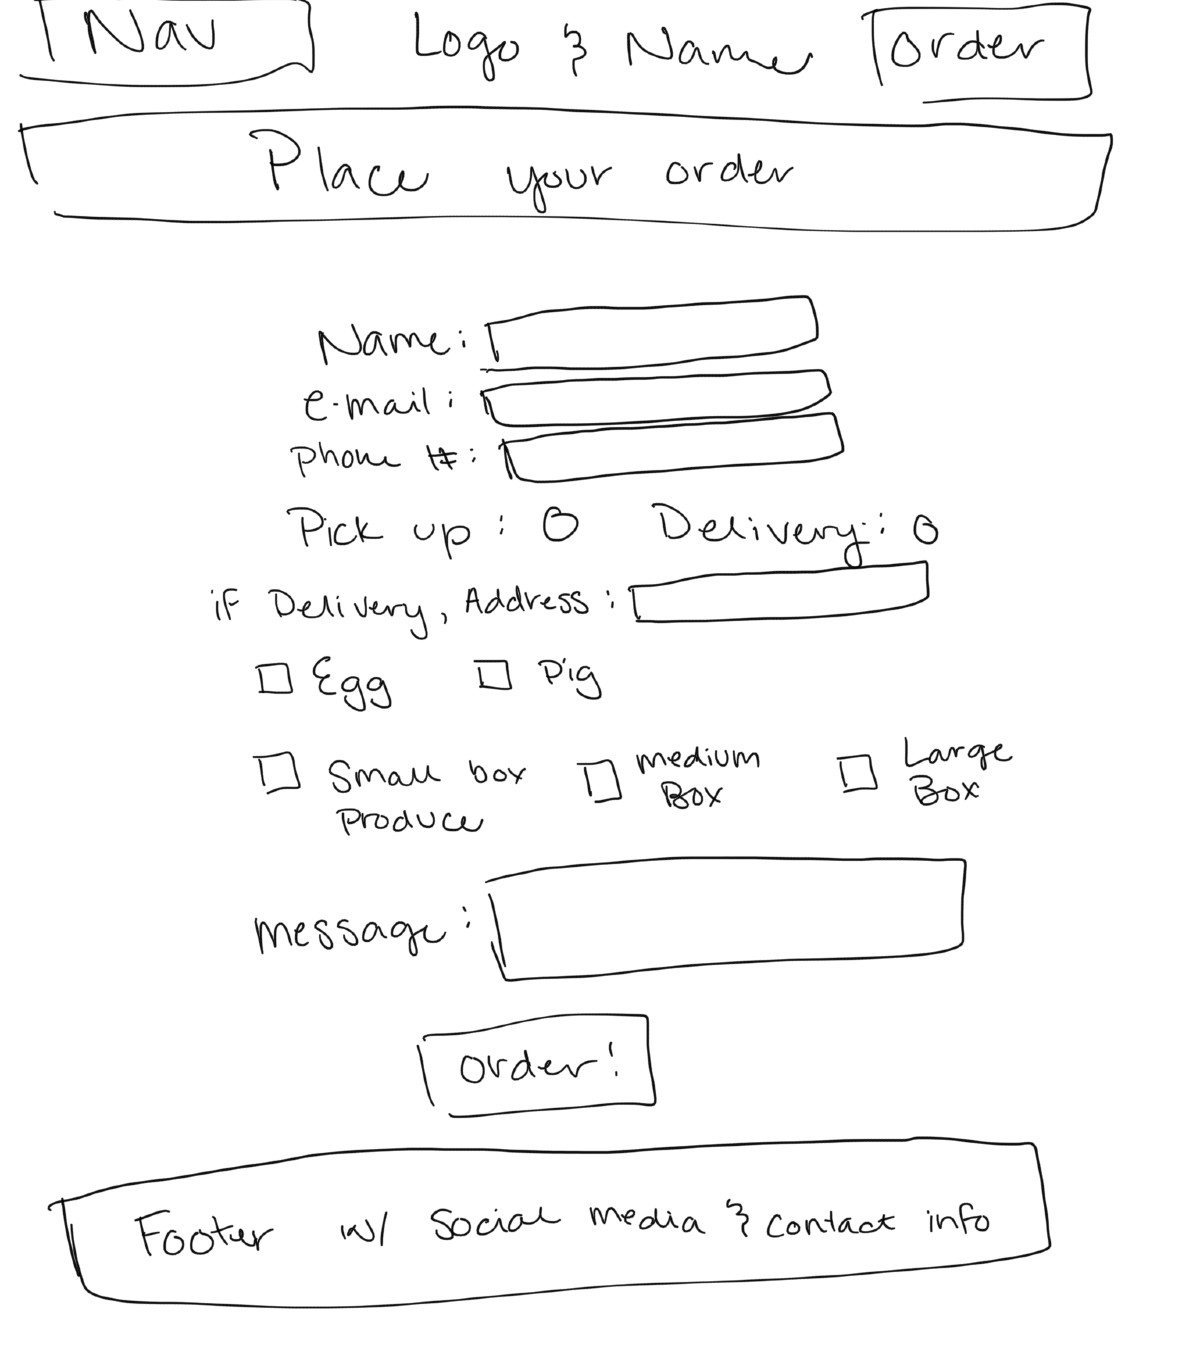 Nav Logo & Name Order
Place your order
Name:
e-mail:
Phone #:
Pick up: Delivery:
if Delivery, Address:
Egg Pig
Small box Produce medium Box Large Box
message:
order!
Footer w/ Social media & contact info